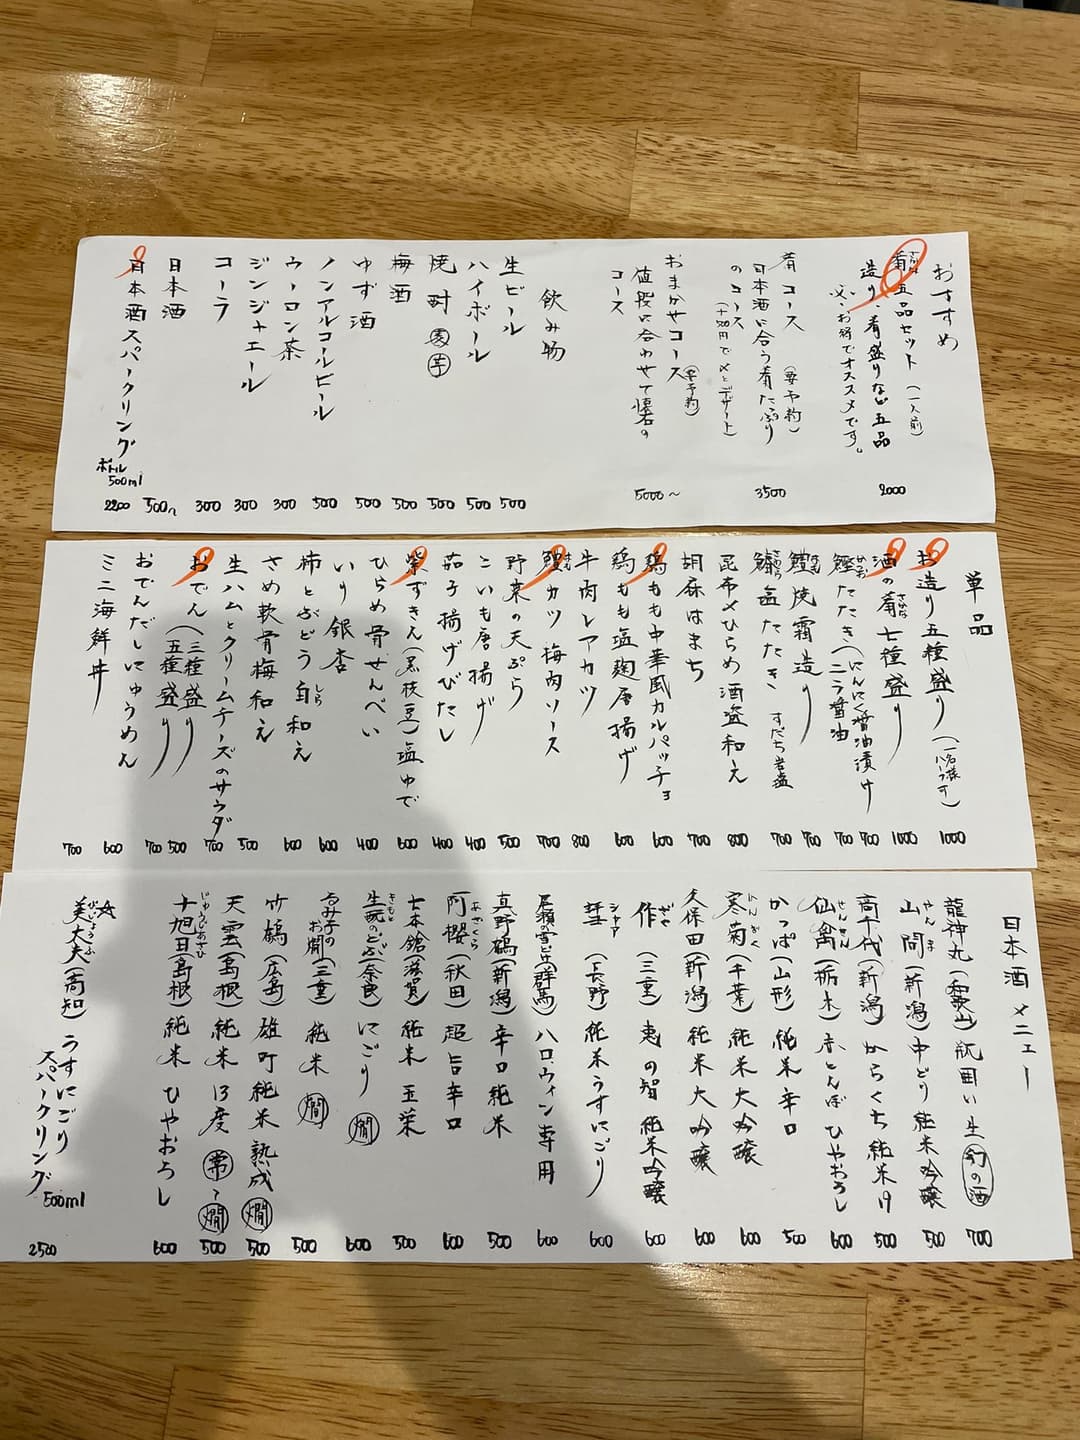 おすすめ
肴五品セット（一人前） 2000
さかな
造り、肴盛りなど五品
お得でオススメです。
肴コース（要予約） 3500
日本酒に合う肴たっぷり
のコース
（+500円で〆とデザート）
おまかせコース（要予約） 5000〜
値段に合わせて懐石の
コース
飲み物
生ビール 500
ハイボール 500
焼酎 麦 芋 500
梅酒 500
ゆず酒 500
ノンアルコールビール 500
ウーロン茶 300
ジンジャエール 300
コーラ 300
日本酒 500〜
日本酒スパークリング ボトル 500ml 2200
単品
お造り五種盛り 1000
酒の肴七種盛り 1000
さかな
鰹たたき（にんにく醤油漬け 700
かつお
二う醤油 700
焼霜造り 700
塩たたき すだち岩塩 700
昆布〆ひらめ酒盗和え 800
胡麻はまち 700
鶏もも中華風カルパッチョ 600
鶏もも塩麹唐揚げ 600
牛肉レアカツ 800
カツ 梅肉ソース 700
野菜の天ぷら 500
こいも唐揚げ 400
茄子揚げびたし 400
紫ずきん（黒枝豆）塩ゆで 600
ひらめ骨せんべい 400
いり銀杏 600
柿とぶどう白和え 600
しら
さめ軟骨梅和え 500
生ハムとクリームチーズのサラダ 700
おでん（三種盛り 500
五種盛り 700
おでんだしにゅうめん 600
ミニ海鮮丼 700
日本酒メニュー
龍神丸（和歌山）瓶囲い生 幻の酒 700
山間（新潟）中どり純米吟醸 500
やんま
高千代（新潟）からくち純米19 500
仙禽（栃木）赤とんぼ ひやおろし 600
せんきん
かっぱ（山形）純米辛口 500
寒菊（千葉）純米大吟醸 600
かんぎく
久保田（新潟）純米大吟醸 600
作（三重）恵の智 純米吟醸 600
ざく
（長野）純米うすにごり 600
尾瀬の雪どけ（群馬）ハロウィン専用 600
真野鶴（新潟）辛口純米 500
阿櫻（秋田）超旨辛口 600
あざくら
七本鎗（滋賀）純米 玉栄 500
生酛のどぶ（奈良）にごり 燗 600
きもと
るみ子の
お燗（三重）純米 燗 500
竹鶴（広島）雄町純米 熟成 燗 500
天雲（島根）純米13度 常〜燗 500
十旭日（島根）純米 ひやおろし 600
じゅうじあさひ
☆美丈夫（高知）うすにごり
びじょうふ
スパークリング 500ml 2500